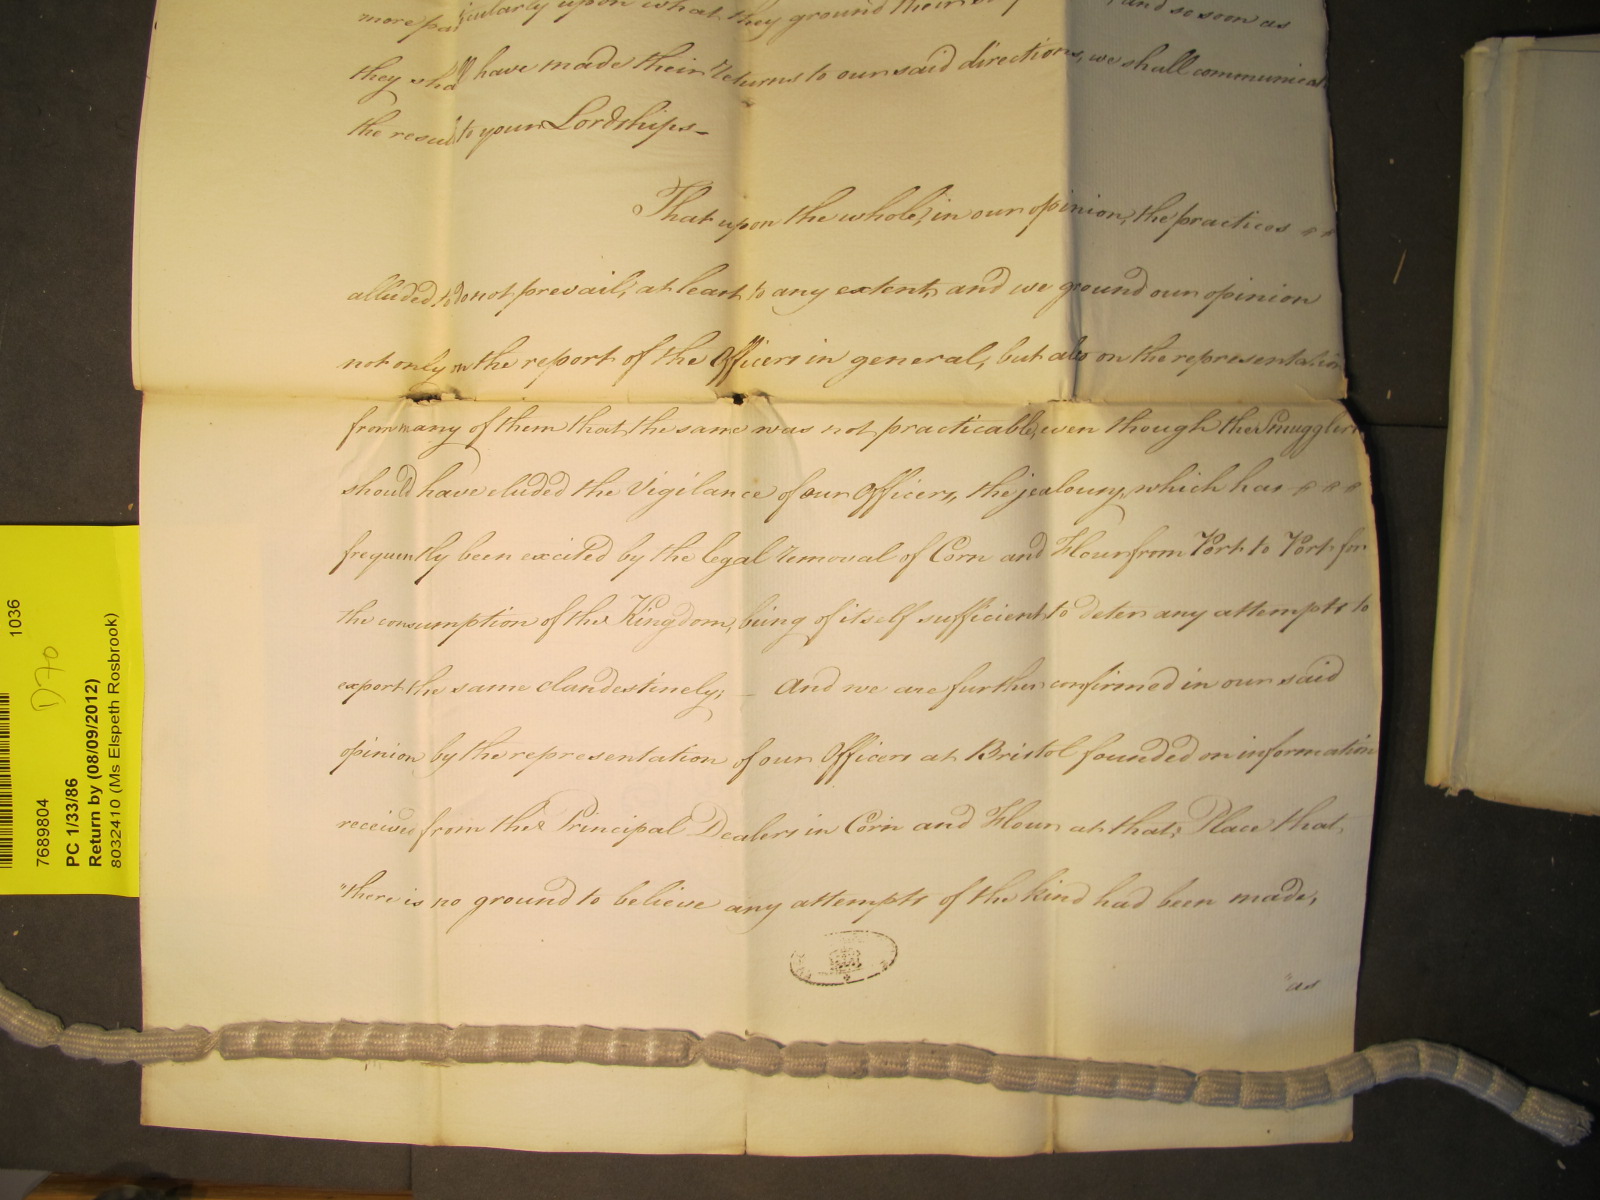 more particularly upon what they ground their and so soon as
they shall have made their returns to our said directions, we shall communicate
the result to your Lordships_
That upon the whole, in our opinion, the practices
alluded to do not prevail, at least to any extent, and we ground our opinion
not only on the report of the Officers in general, but also on the representation
from many of them that the same was not practicable, even though the Smugglers
should have eluded the Vigilance of our Officers, the jealousy, which has
frequently been excited by the legal removal of Corn and Flour from Port to Port for
the consumption of the Kingdom, being of itself sufficient to deter any attempts to
export the same clandestinely; _ And we are further confirmed in our said
opinion by the representation of our Officers at Bristol founded on information
received from the Principal Dealers in Corn and Flour at that Place that,
"there is no ground to believe any attempts of the kind had been made,
"as
1036
D70
7689804
PC 1/33/86
Return by (08/09/2012)
8032410 (Ms Elspeth Rosbrook)